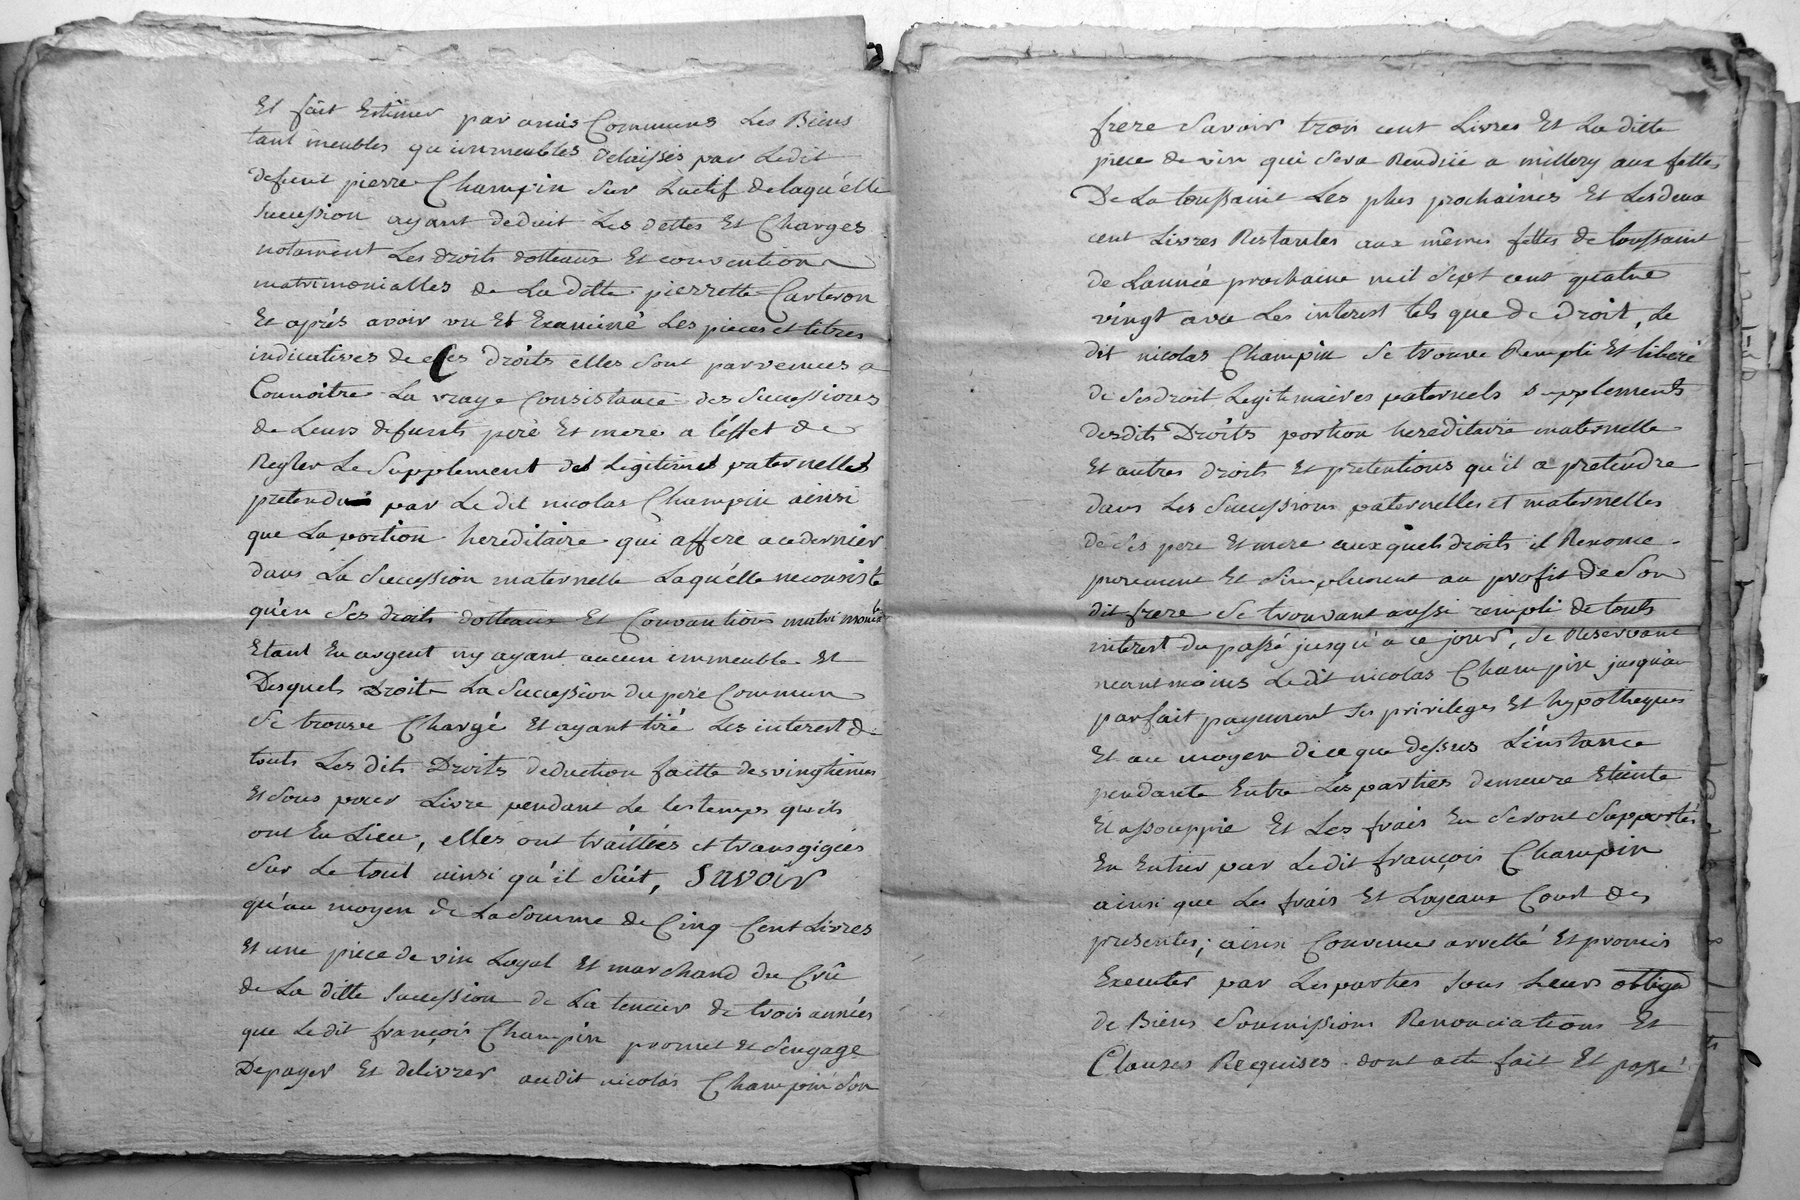 Et fait Estimer par amis Communs Les Biens
tant meubles qu'immeubles delaissés par Ledit
defunt pierre Champin Sur Lactif de laquelle
Succession ayant deduit Les dettes Et Charges
notament Les droits dotteaux Et convention
matrimonialles de La ditte pierrette Carteron
Et aprés avoir vu Et Examiné Les pieces et titres
indicatives de Ces droits elles Sont parvenues a
Connoitre La vraye Consistance des Successions
de Leurs defunts peré Et mere a l'éffet de
Regler Le Supplement des Legitimes paternelles
pretendu par Le dit nicolas Champin ainsi
que La portion hereditaire qui affere a ce dernier
dans La Succession maternelle Laquélle ne consiste
qu'en Ses droits dotteaux Et Convantions matrimoni^les
Etant En argent ny ayant aucun immeuble Et
Desquels Droits La Succession du pere Commun
Se trouve Chargé Et ayant tiré Les interest de
touts Les dits Droits deduction faitte des vingtiemes
Et Sous pour Livre pendant Le les temps qu'ils
ont Eu Lieu, elles ont traittées et transigées
Sur Le tout ainsi qu'il Suit, Savoir
qu'au moyen de La Somme de Cinq Cent Livres
Et une piece de vin Loyal Et marchand du Crû
de La ditte Succession de La teneur de trois années
que Ledit françois Champin promet Et S'engage
De payer Et delivrer audit nicolas Champin Son
frere Savoir trois cent Livres Et La ditte
piece de vin qui Sera Rendüe a millery aux fettes
De La toussaint Les plus prochaines Et Les deux
cent Livres Restantes aux mêmes fettes de toussaint
de Lannée prochaine mil Sept cent quatre
vingt avec Les interest tels que de Droit, Le
dit nicolas Champin Se trouve Rempli Et libéré
de Ses droit Legitimaires paternels Supplements
desdits Droits portion hereditaire maternelle
Et autres droits Et pretentions qu'il a pretendre
dans Les Successions paternelles et maternelles
de Ses pere Et mere auxquels droits il Renonce
purement Et Simplement au profit De Son
dit frere Se trouvant aussi rempli de touts
interest du passé jusqu'a ce jour, Se Reservant
neantmoins Ledit nicolas Champin jusqu'au
parfait payement Ses privileges Et hypotheques
Et au moyen de ce que dessus L'instance
pendante Entre Les parties demeure Eteinte
Et assouppie Et Les frais En Seront Supportés
En Entier par Ledit françois Champin
ainsi que Les frais Et Loyeaux Cout des
presentes; ainsi Convenu arretté Et promis
Executer par Les parties Sous Leurs obligeõ
de Biens Soumissions Renonciations Et
Clauses Requises dont acte fait Et passé